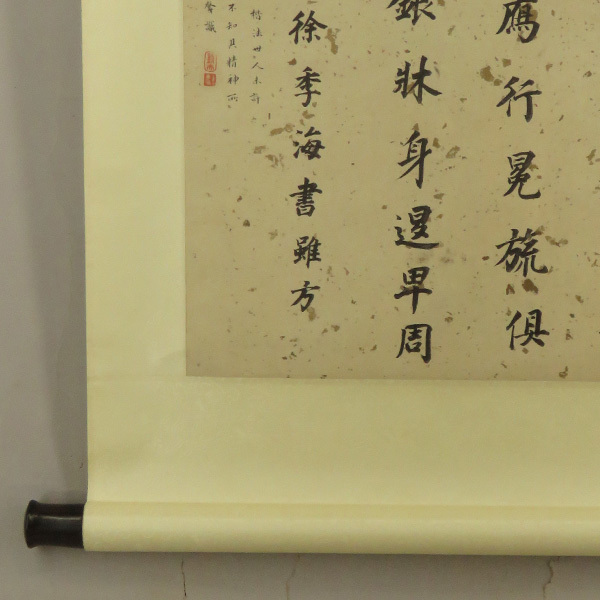 鴈行冕旒俱
銀牀身退卑周
徐季海書雖方
楷法世人未
不知其精神所